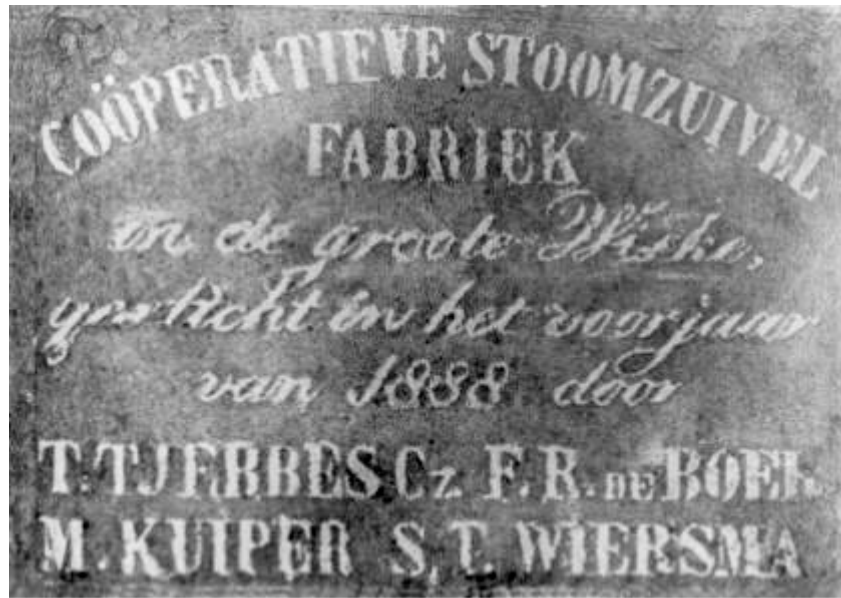 COÖPERATIEVE STOOMZUIVEL
FABRIEK
in de groote Wiske,
gesticht in het voorjaar
van 1888 door
T. TJEBBES Cz. F. R. DE BOER
M. KUIPER S. T. WIERSMA